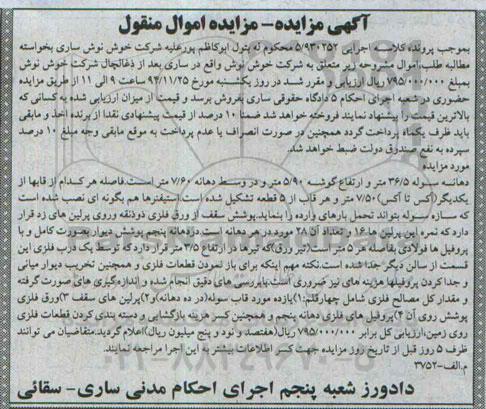 آگهی مزایده- مزایده اموال منقول
بموجب پرونده کلاسه اجرایی ۵/۹۳۰۲۵۲ محکوم له بتول ابوکاظم پورعلیه شرکت خوش نوش ساری بخواسته
مطالبه طلب،اموال مشروحه زیر متعلق به شرکت خوش نوش واقع در ساری بعد از ذغالچال شرکت خوش نوش
بمبلغ ۷۹۵/۰۰۰/۰۰۰ ریال ارزیابی و مقرر شد در روز یکشنبه مورخ ۹۴/۱۱/۲۵ ساعت ۹ الی ۱۱ از طریق مزایده
حضوری در شعبه اجرای احکام ۵ دادگاه حقوقی ساری بفروش برسد و قیمت از میزان ارزیابی شده به کسانی که
بالاترین قیمت را پیشنهاد نمایند فروخته خواهد شد ضمنا ۱۰ درصد از قیمت پیشنهادی نقدا از برنده اخذ و مابقی
باید ظرف یکماه پرداخت گردد همچنین در صورت انصراف یا عدم پرداخت به موقع مابقی وجه مبلغ ۱۰ درصد
سپرده به نفع صندوق دولت ضبط خواهد شد.
مورد مزایده
دهانه سوله ۳۶/۵ متر و ارتفاع گوشه ۵/۹۰ متر و در وسط دهانه ۷/۶۰ متر است.فاصله هر کدام از قابها از
یکدیگر(اکس تا اکس)۷/۵۰ متر و هر قاب از ۵ قطعه تشکیل شده است.استیفنرها هم بگونه ای نصب شده است
که سازه سوله بتواند تحمل بارهای وارده را بنماید.پوشش سقف از ورق فلزی ذوزنقه وروی پرلین های زد قرار
دارد که نمره این پرلین ها۱۶ و تعداد آن ۲۸ مورد در هر دهانه است.دردهانه پنجم پوشش دیوار بصورت کامل و با
پروفیل ها فولادی بفاصله هر ۵ متر است(تیر ورق)که تیرها در ارتفاع ۳/۵ متر قرار دارد که توسط یک درب فلزی این
قسمت از سالن دیگر جدا شده است.نکته مهم اینکه برای باز نمودن قطعات فلزی و همچنین تخریب دیوار میانی
و جدا کردن پروفیلها هزینه های نیز ضروری است.بابررسی های دقیق انجام شده و اندازه گیری های صورت گرفته
و مقدار کل مصالح فلزی شامل چهارقلم:۱)یازده مورد قاب سوله(در ده دهانه)و۲)پرلین های سقف ۳)ورق فلزی
پوشش روی آن ۴)پروفیل های فلزی دهانه پنجم و همچنین کسر هزینه بازگشایی و دسته بندی کردن قطعات فلزی
روی زمین،ارزیابی کل برابر ۷۹۵/۰۰۰/۰۰۰ ریال(هفتصد و نود و پنج میلیون ریال)اعلام گردید.متقاضیان می توانند
ظرف ۵ روز قبل از تاریخ روز مزایده جهت کسب اطلاعات بیشتر به این اجرا مراجعه نمایند.
م.الف-۳۷۵۲
دادورز شعبه پنجم اجرای احکام مدنی ساری- سقائی